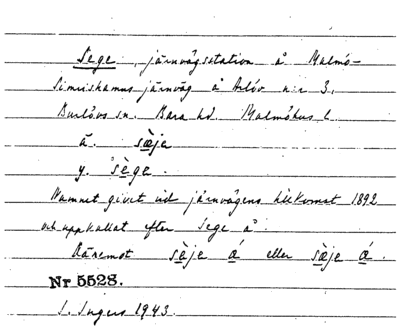 Sege, järnvägsstation å Malmö-
Simrishamns järnväg å Arlöv n:r 3,
Burlövs sn. Bara hd. Malmöhus l.
ä. sæje
y. sège.
Namnet givet vid järnvägens tillkomst 1892
och uppkallat efter Sege å.
Däremot sèje å eller sæje å.
Nr 5528.
S. Ingers 1943.